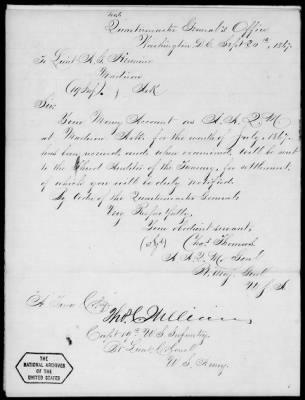 Quartermaster General's Office
Washington D.C. Sept 20th, 1867.
To Lieut A. E.
Madison
(19 Inf) Ark
Sir:
Your Money Account as A. A. Q. M
at Madison for the month of July, 1867.
has been received, and when examined will be sent
to the Third Auditor of the Treasury, for settlement,
of which you will be duly notified.
By order of the Quartermaster General
Very Respectfully,
Your obedient servant,
(Sgd) Chas Thomas
A. Q. M. Genl
Bt. Maj. Genl
U. S. A.
A True Copy
Capt 19th U. S. Infantry
Bt Lieut Colonel
U. S. Army.
THE
NATIONAL ARCHIVES
OF THE
UNITED STATES